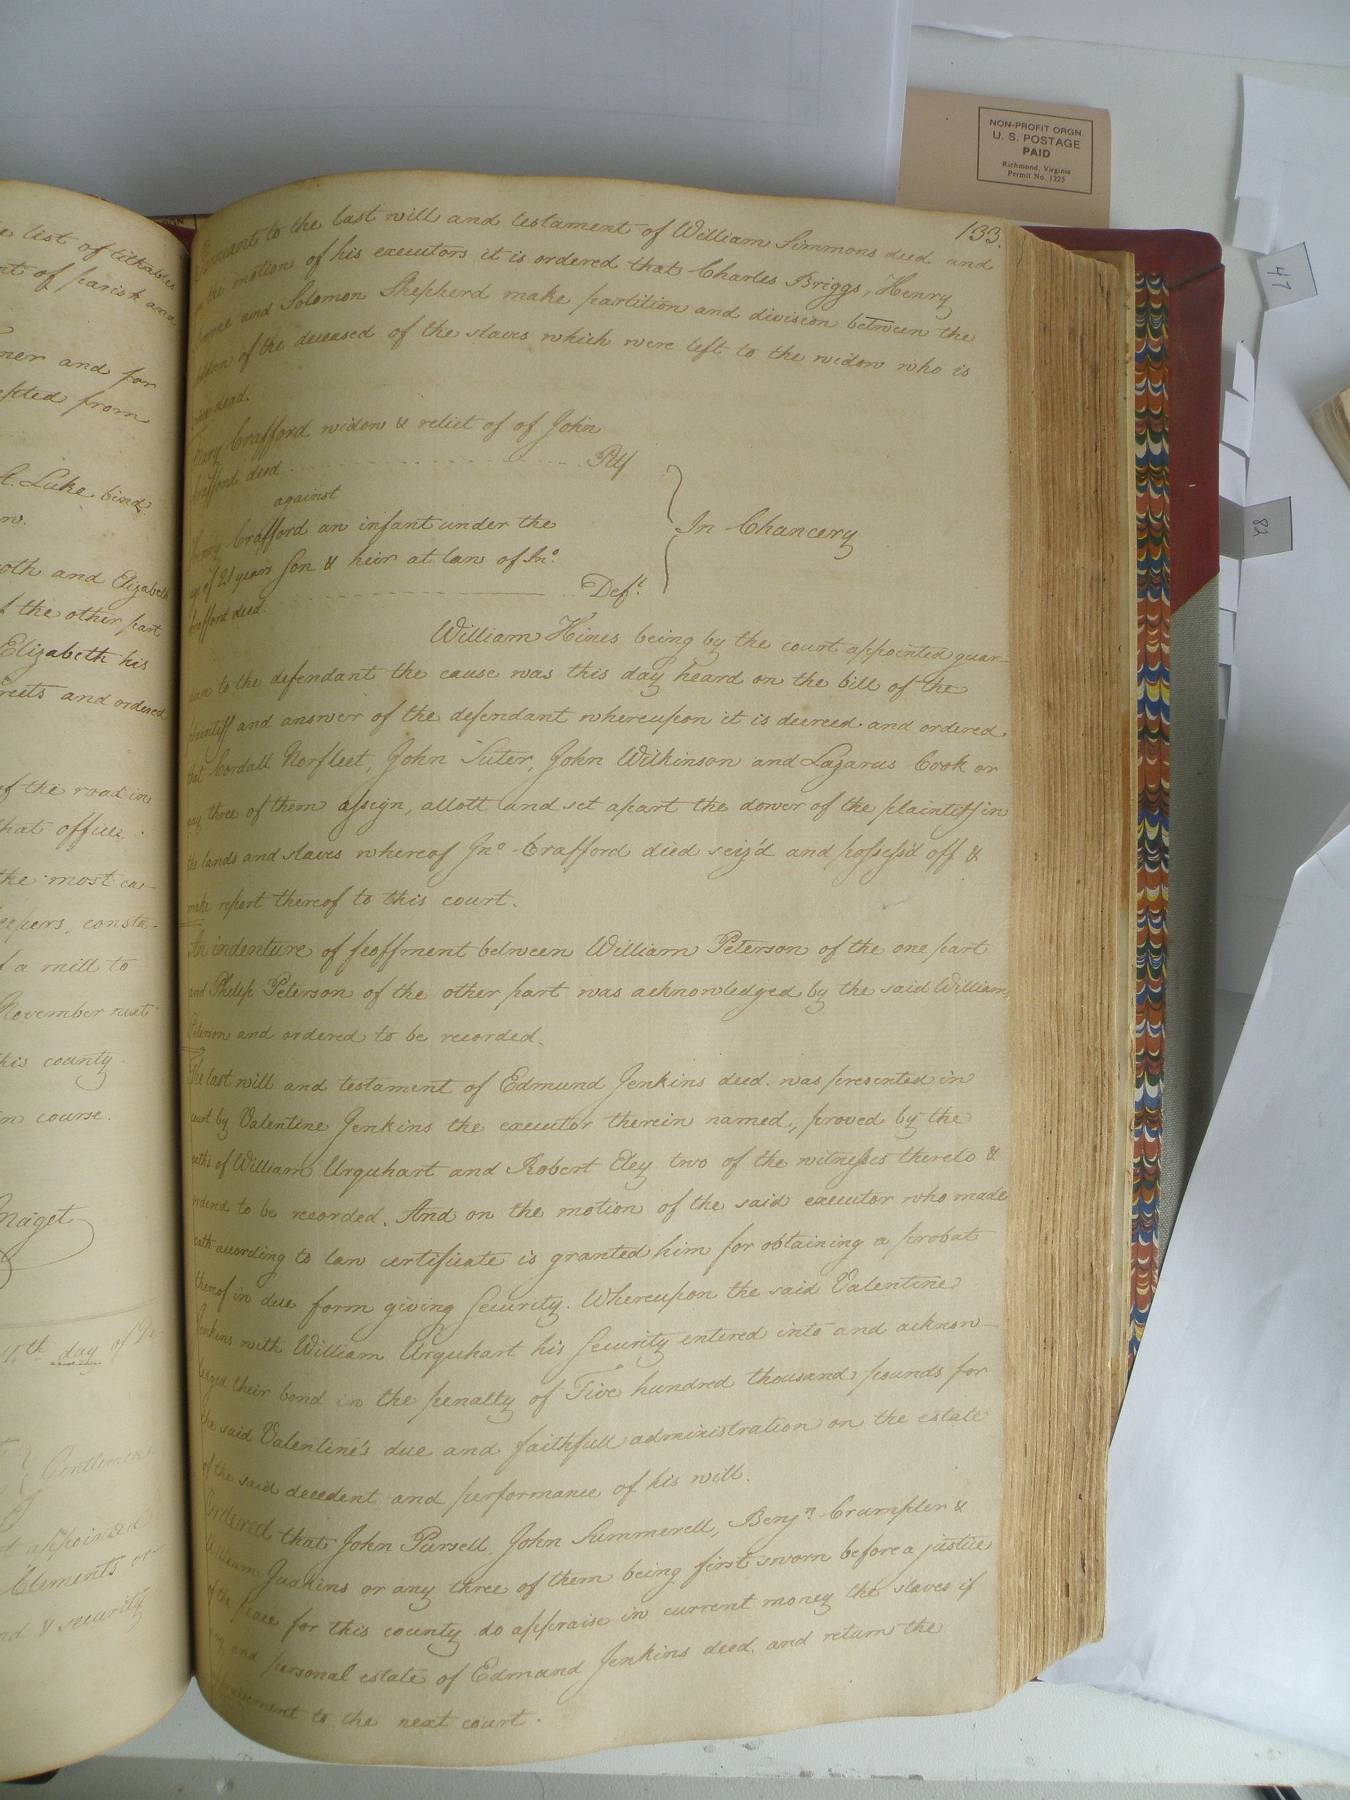 e list of tithables
nt of parish and
ner and for
epted from
A. Luke bind
w.
oth and Elizabeth
f the other part
Elizabeth his
and ordered
of the road in
that office.
the most ca-
eepers, consta-
f a mill to
November next
his county.
in course.
Maget
4th day of
Gentlemen
t appointed
Clements or
nd & security
NON-PROFIT ORGN.
U. S. POSTAGE
PAID
Richmond, Virginia
Permit No. 1225
47
82
133.
Pursuant to the last will and testament of William Simmons deed and
the motion of his executors it is ordered that Charles Briggs, Henry
and Solomon Shepherd make partition and division between the
children of the deceased of the slaves which were left to the widow who is
dead.
Mary Crafford widow & relict of of John
Crafford deed Pltf
against
Henry Crafford an infant under the
age of 21 years Son & heir at law of Jno.
Crafford deed. Deft.
In Chancery
William Hines being by the court appointed guar-
dian to the defendant the cause was this day heard on the bill of the
plaintiff and answer of the defendant whereupon it is decreed and ordered
that Cordall Norfleet, John Suter, John Wilkinson and Lazarus Cook or
any three of them assign, allott and set apart the dower of the plaintiff in
the lands and slaves whereof Jno. Crafford died seiz'd and possess'd off &
make report thereof to this court.
An indenture of feoffment between William Peterson of the one part
and Philip Peterson of the other part was acknowledged by the said William
Peterson and ordered to be recorded.
The last will and testament of Edmund Jenkins deed. was presented in
court by Valentine Jenkins the executor therein named, proved by the
oaths of William Urquhart and Robert Eley two of the witnesses thereto &
ordered to be recorded. And on the motion of the said executor who made
oath according to law certificate is granted him for obtaining a probat
thereof in due form giving Security. Whereupon the said Valentine
Jenkins with William Urquhart his Security entered into and acknow-
ledged their bond in the penalty of Five hundred thousand pounds for
the said Valentine's due and faithfull administration on the estate
of the said decedent and performance of his will.
Ordered that John Pursell, John Summerell, Benjn. Crumpler &
William Juakins or any three of them being first sworn before a justice
of the peace for this county do appraise in current money the slaves if
any and personal estate of Edmund Jenkins deed. and return the
appraisement to the next court.